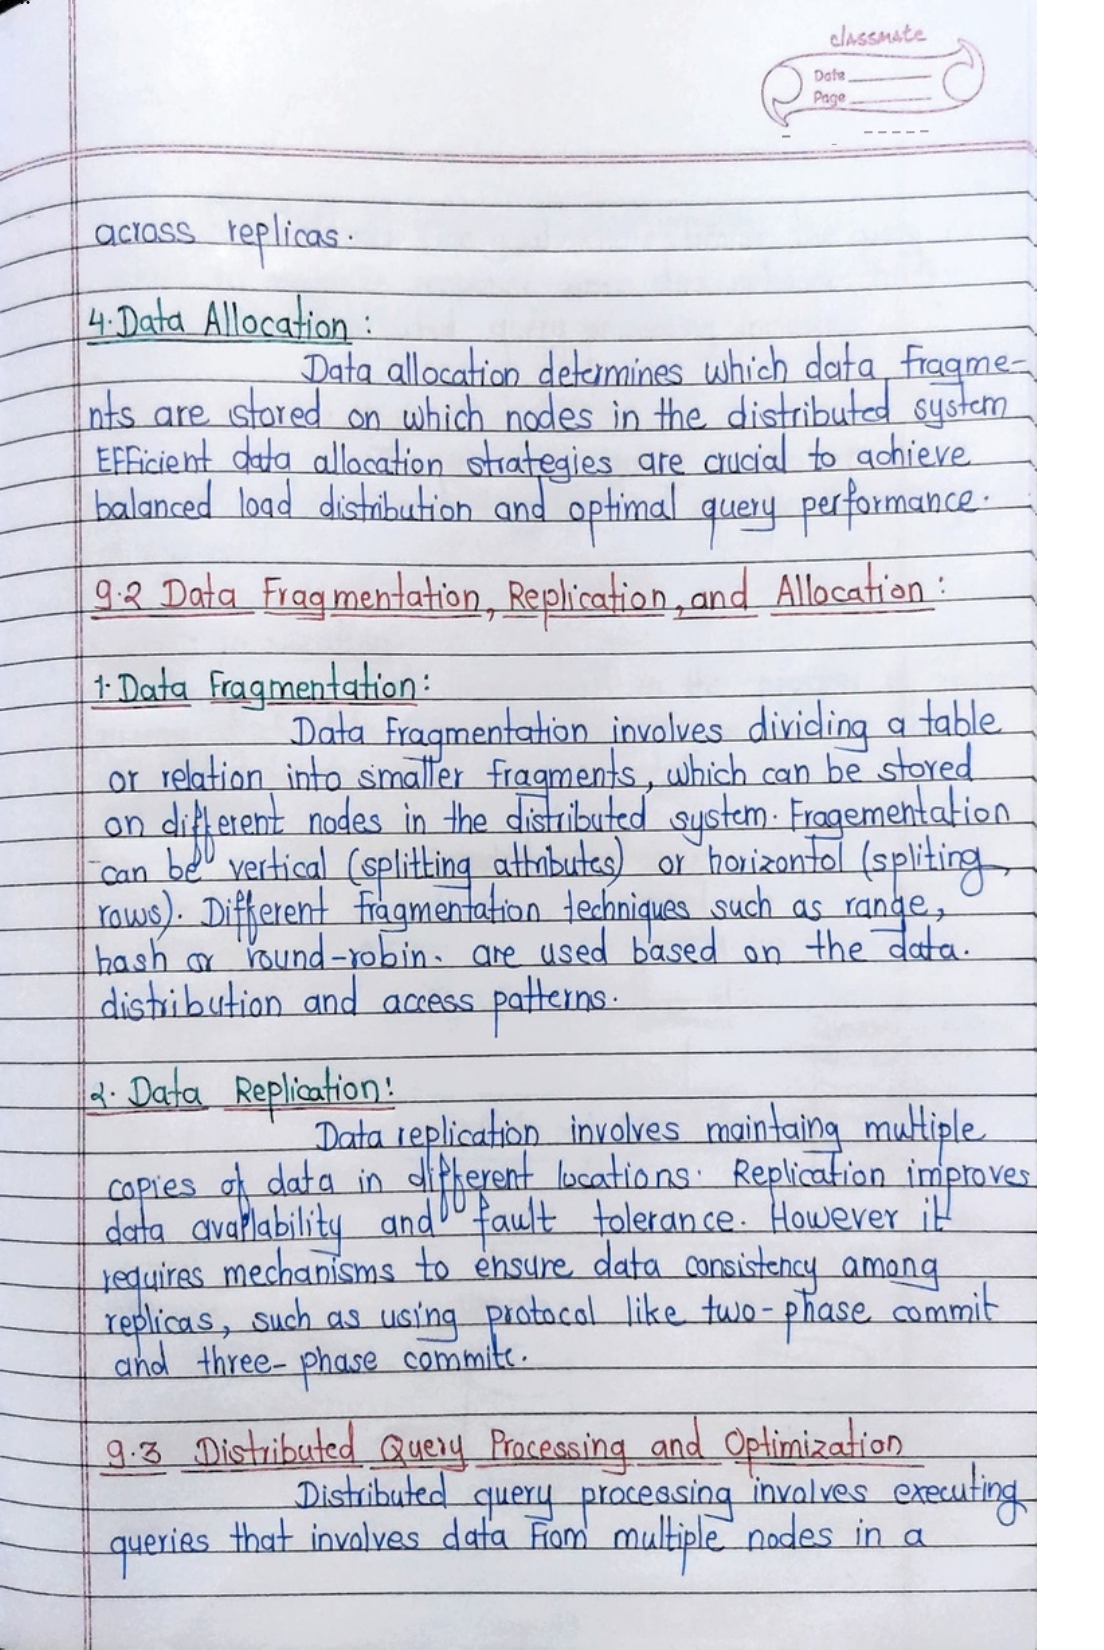 classmate
Date
Page
across replicas.
4. Data Allocation :
Data allocation determines which data fragme-
nts are stored on which nodes in the distributed system
Efficient data allocation strategies are crucial to achieve
balanced load distribution and optimal query performance.
9.2 Data Fragmentation, Replication, and Allocation :
1. Data Fragmentation :
Data Fragmentation involves dividing a table
or relation into smaller fragments, which can be stored
on different nodes in the distributed system. Fragementation
can be vertical (splitting attributes) or horizontol (spliting
rows). Different fragmentation techniques such as range,
hash or round-robin. are used based on the data.
distribution and access patterns.
2. Data Replication :
Data replication involves maintaing multiple
copies of data in different locations. Replication improves
data availability and fault tolerance. However it
requires mechanisms to ensure data consistency among
replicas, such as using protocol like two-phase commit
and three-phase commite.
9.3 Distributed Query Processing and Optimization
Distributed query processing involves executing
queries that involves data from multiple nodes in a